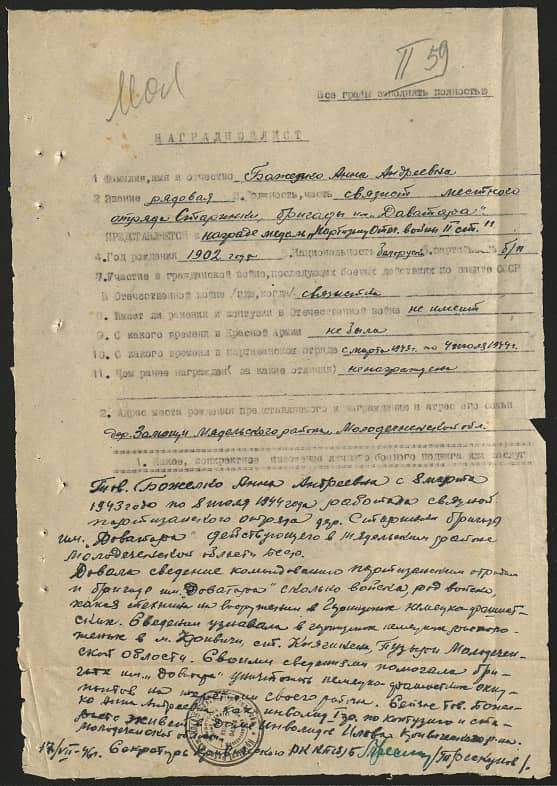 II 59
Все графы заполнять полностью
НАГРАДНОЙ ЛИСТ
1 Фамилия, имя и отчество Боженко Анна Андреевна
2 Звание рядовая 3. Должность, часть связист местного
отряда Старинки, бригады им. "Даватара".
ПРЕДСТАВЛЯЕТСЯ к награде медал "Партизану Отеч. войны II ст."
4. Год рождения 1902 года 5. Национальность белорус б/п
7. Участие в гражданской войне, последующих боевых действиях по защите СССР
в Отечественной войне /где, когда/ связистка
8. Имеет ли ранения и контузии в Отечественной войне не имеет
9. С какого времени в Красной Армии не была
10. С какого времени в партизанском отряде с марта 1943 г. по 4 июля 1944 г.
11. Чем ранее награжден( за какие отличия) ненаграждена
2. Адрес места рождения представляемого к награждению и адрес его семьи
дер. Мядельского района Молодечненской обл.
1. Краткое, конкретное изложение личного боевого подвига или заслуг
Тов. Боженко Анна Андреевна с 8 марта
1943 года по 8 июля 1944 года работала связной
партизанского отряда дер. Старинки бригада
им. "Доватара" действующего в Мядельском районе
Молодеченской области БССР.
Довала сведение командованию партизанским отрядам
и бригаде им. "Доватара" сколько войска, род войска,
какая техника на вооружении в немецко-фашист-
ских. Сведении узнавала в
в м. Кривичи, ст. Княгинин, Молодечен-
ской области. Своими сведениями помогала бри-
гаде им. "Доватара" уничтожить немецко-фашистских окку-
пантов на своего района. Сейчас тов. Божен-
ко Анна Андреевна инвалид
живет инвалидов
Молодечненской
17/VII-46 г. Секретарь РК КП(б)Б